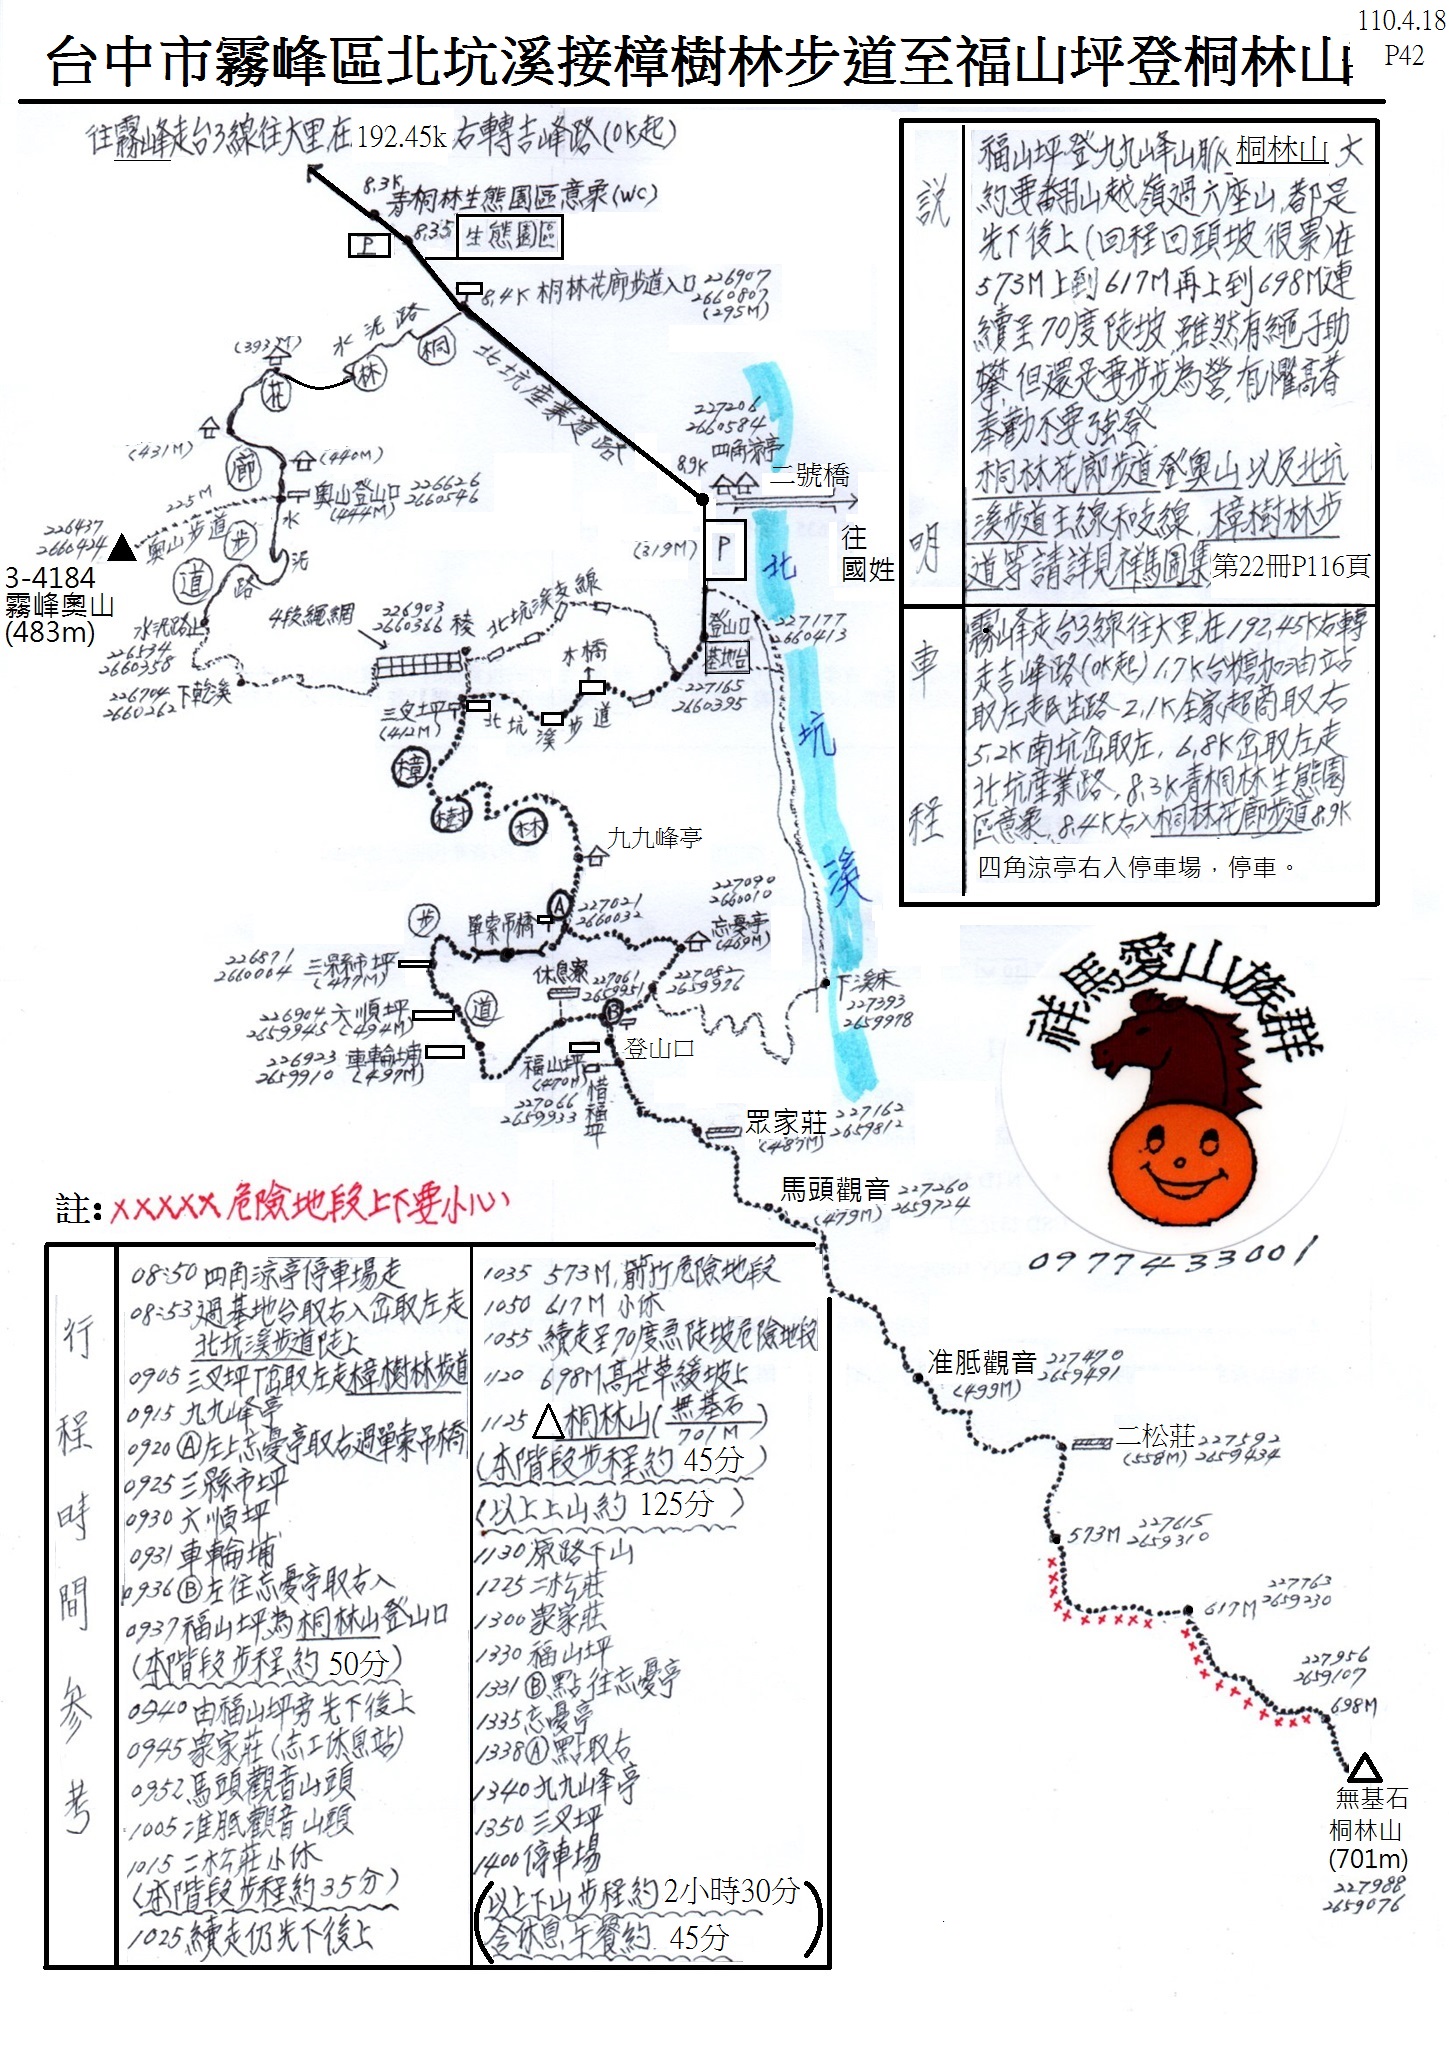 110.4.18
P42
台中市霧峰區北坑溪接樟樹林步道至福山坪登桐林山
往霧峰走台3線往大里在192.45k右轉吉峰路(0K起)
8.3K
青桐林生態園區意象(WC)
P
8.35
生態園區
8.4K 桐林花廊步道入口
226907
2660807
(295M)
水泥路
桐
林
花
廊
步
道
(393M)
(431M)
(440M)
北坑產業道路
奧山登山口
(444M)
226626
2660546
225M
奧山步道
226437
2660424
3-4184
霧峰奧山
(483m)
水泥路
水泥路止
226534
2660358
226704 下乾溪
2660262
4段繩網
226903
2660366
稜
北坑溪支線
木橋
三叉坪
(412M)
北坑溪步道
227206
2660584
四角涼亭
8.9K
二號橋
往
國姓
(319M)
P
登山口
基地台
227177
2660413
227165
2660395
北
坑
溪
樟
樹
林
步
道
九九峰亭
A
227021
2660032
單索吊橋
227090
2660010
忘憂亭
(469M)
226871
2660004
三縣市坪
(477M)
休息寮
227061
2659951
B
227082
2659976
下溪床
227393
2659978
226904
2659945
六順坪
(494M)
226923
2659910
車輪埔
(497M)
登山口
福山坪
(470M)
227066
2659933
惜福坪
眾家莊
(487M)
227162
2659812
馬頭觀音
(479M)
227260
2659724
准胝觀音
(499M)
227470
2659491
二松莊
(558M)
227592
2659434
573M
227615
2659310
617M
227763
2659230
227956
2659107
698M
無基石
桐林山
(701m)
227988
2659076
說明
福山坪登九九峰山脈 桐林山 大
約要翻山越嶺過六座山,都是
先下後上(回程回頭坡很累)在
573M上到617M再上到698M連
續至70度陡坡,雖然有繩子助
攀,但還是要步步為營,有懼高者
奉勸不要強登.
桐林花廊步道登奧山以及北坑
溪步道主線和支線,樟樹林步
道等請詳見祥馬圖集第22冊P116頁
車程
霧峰走台3線往大里,在192.45K右轉
走吉峰路(0K起)1.7K台糖加油站
取左走民生路.2.1K全家超商取右
5.2K南坑岔取左,6.8K岔取左走
北坑產業路,8.3K青桐林生態園
區意象,8.4K右入桐林花廊步道8.9K
四角涼亭右入停車場，停車。
祥馬愛山族群
0977433001
註: xxxxx 危險地段上下要小心
行程時間參考
08:50 四角涼亭停車場走
08:53 過基地台取右入岔取左走
北坑溪步道陡上
0905 三叉坪T岔取左走樟樹林步道
0915 九九峰亭
0920 Ⓐ左上忘憂亭取右過單索吊橋
0925 三縣市坪
0930 六順坪
0931 車輪埔
0936 Ⓑ左往忘憂亭取右入
0937 福山坪為桐林山登山口
(本階段步程約 50分)
0940 由福山坪旁先下後上
0945 眾家莊(志工休息站)
0952 馬頭觀音山頭
1005 准胝觀音山頭
1015 二松莊小休
(本階段步程約35分)
1025 續走仍先下後上
1035 573M,箭竹危險地段
1050 617M 小休
1055 續走至70度急陡坡危險地段
1120 698M,高芒草緩坡上
1125 △桐林山(無基石 701M)
(本階段步程約 45分)
(以上上山約 125分)
1130 原路下山
1225 二松莊
1300 眾家莊
1330 福山坪
1331 Ⓑ點往忘憂亭
1335 忘憂亭
1338 Ⓐ點取右
1340 九九峰亭
1350 三叉坪
1400 停車場
(以上下山步程約2小時30分
含休息午餐約 45分)